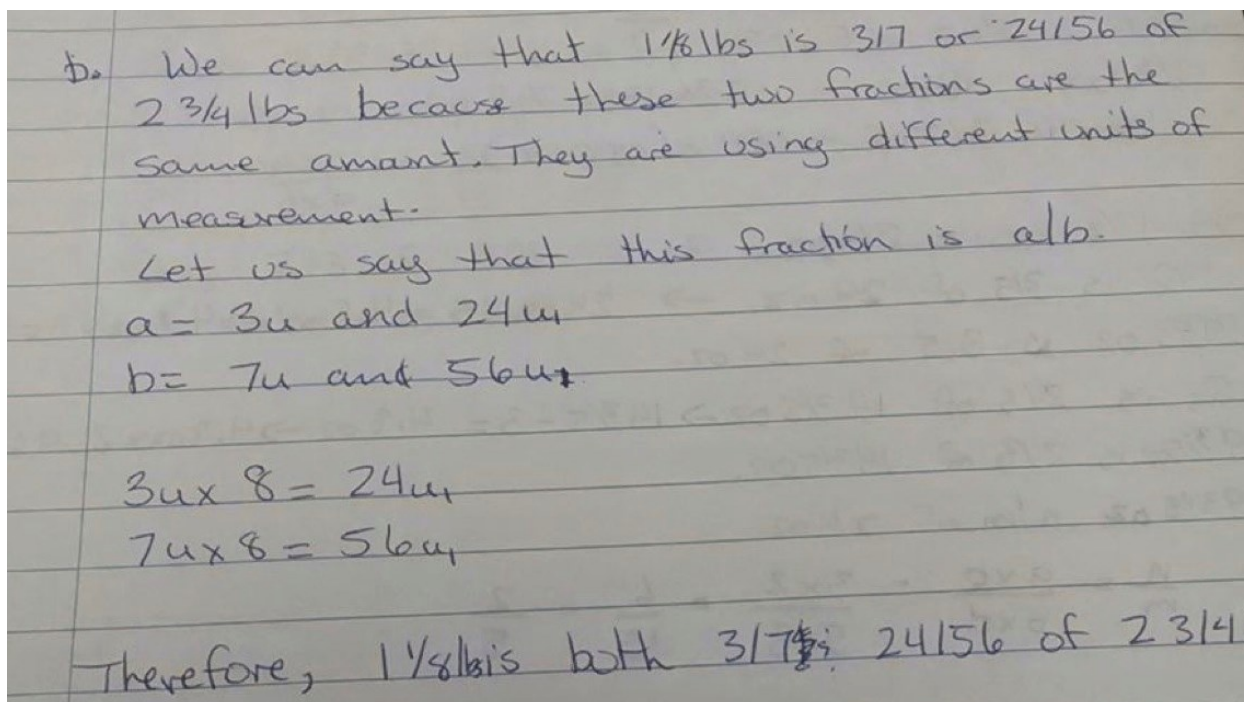 b. We can say that 1 1/8 lbs is 3/7 or 24/56 of
2 3/4 lbs because these two fractions are the
same amant. They are using different units of
measurement.
Let us say that this fraction is a/b.
a= 3u and 24u₁
b= 7u and 56u₁
3u x 8 = 24u₁
7u x 8 = 56u₁
Therefore, 1 1/8 lb is both 3/7 24/56 of 2 3/4